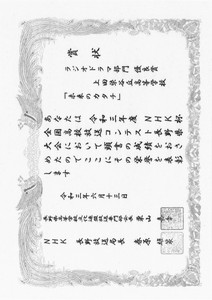 賞状
ラジオドラマ部門 優良賞
上田染谷丘高等学校
『未来のカタチ』
あなたは令和三年度NHK杯
全国高校放送コンテスト長野県
大会において頭書の成績をおさ
めたのでここにその栄誉を表彰
します
令和三年六月十三日
長野県高等学校文化連盟放送専門部会長
NHK 長野放送局長 春原